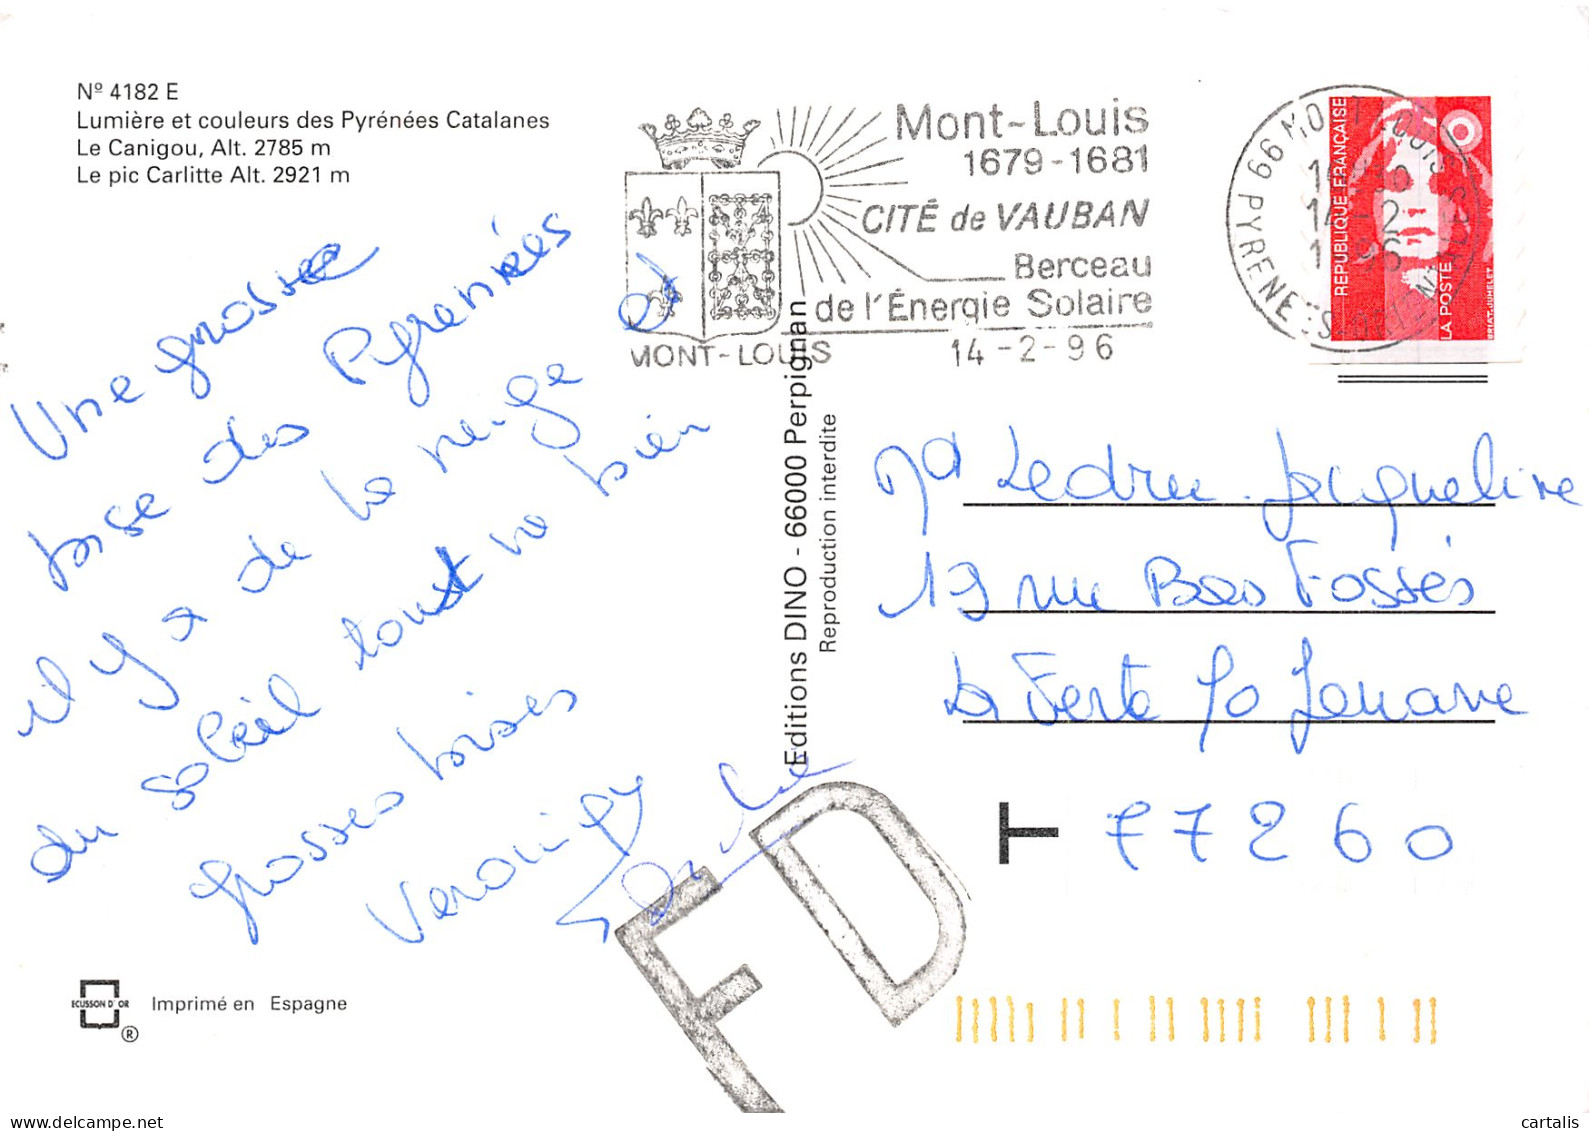 Nº 4182 E
Lumière et couleurs des Pyrénées Catalanes
Le Canigou, Alt. 2785 m
Le pic Carlitte Alt. 2921 m
Une grosse
bise des Pyrenées
il y a de la neige et
du soleil tout va bien
grosses bises
ECUSSON D'OR
®
Imprimé en Espagne
Editions DINO - 66000 Perpignan
Reproduction interdite
MONT-LOUIS
Mont-Louis
1679-1681
CITÉ de VAUBAN
Berceau
de l'Énergie Solaire
14-2-96
66 MONT LOUIS
PYRENEES-ORIENTALES
14-2
REPUBLIQUE FRANÇAISE
LA POSTE
BRIAT-JUMELET
Md Ledru Jacqueline
19 rue Bas Fossés
La Ferte
T 77260
FD
cartalis